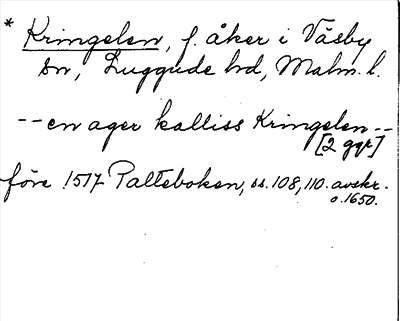 * Kringelen, f. åker i Väsby
sn, Luggude hd, Malm. l.
-- en ager kalliss Kringelen --
[2 ggr]
före 1517 Palteboken, ss. 108, 110. avskr.
o. 1650.